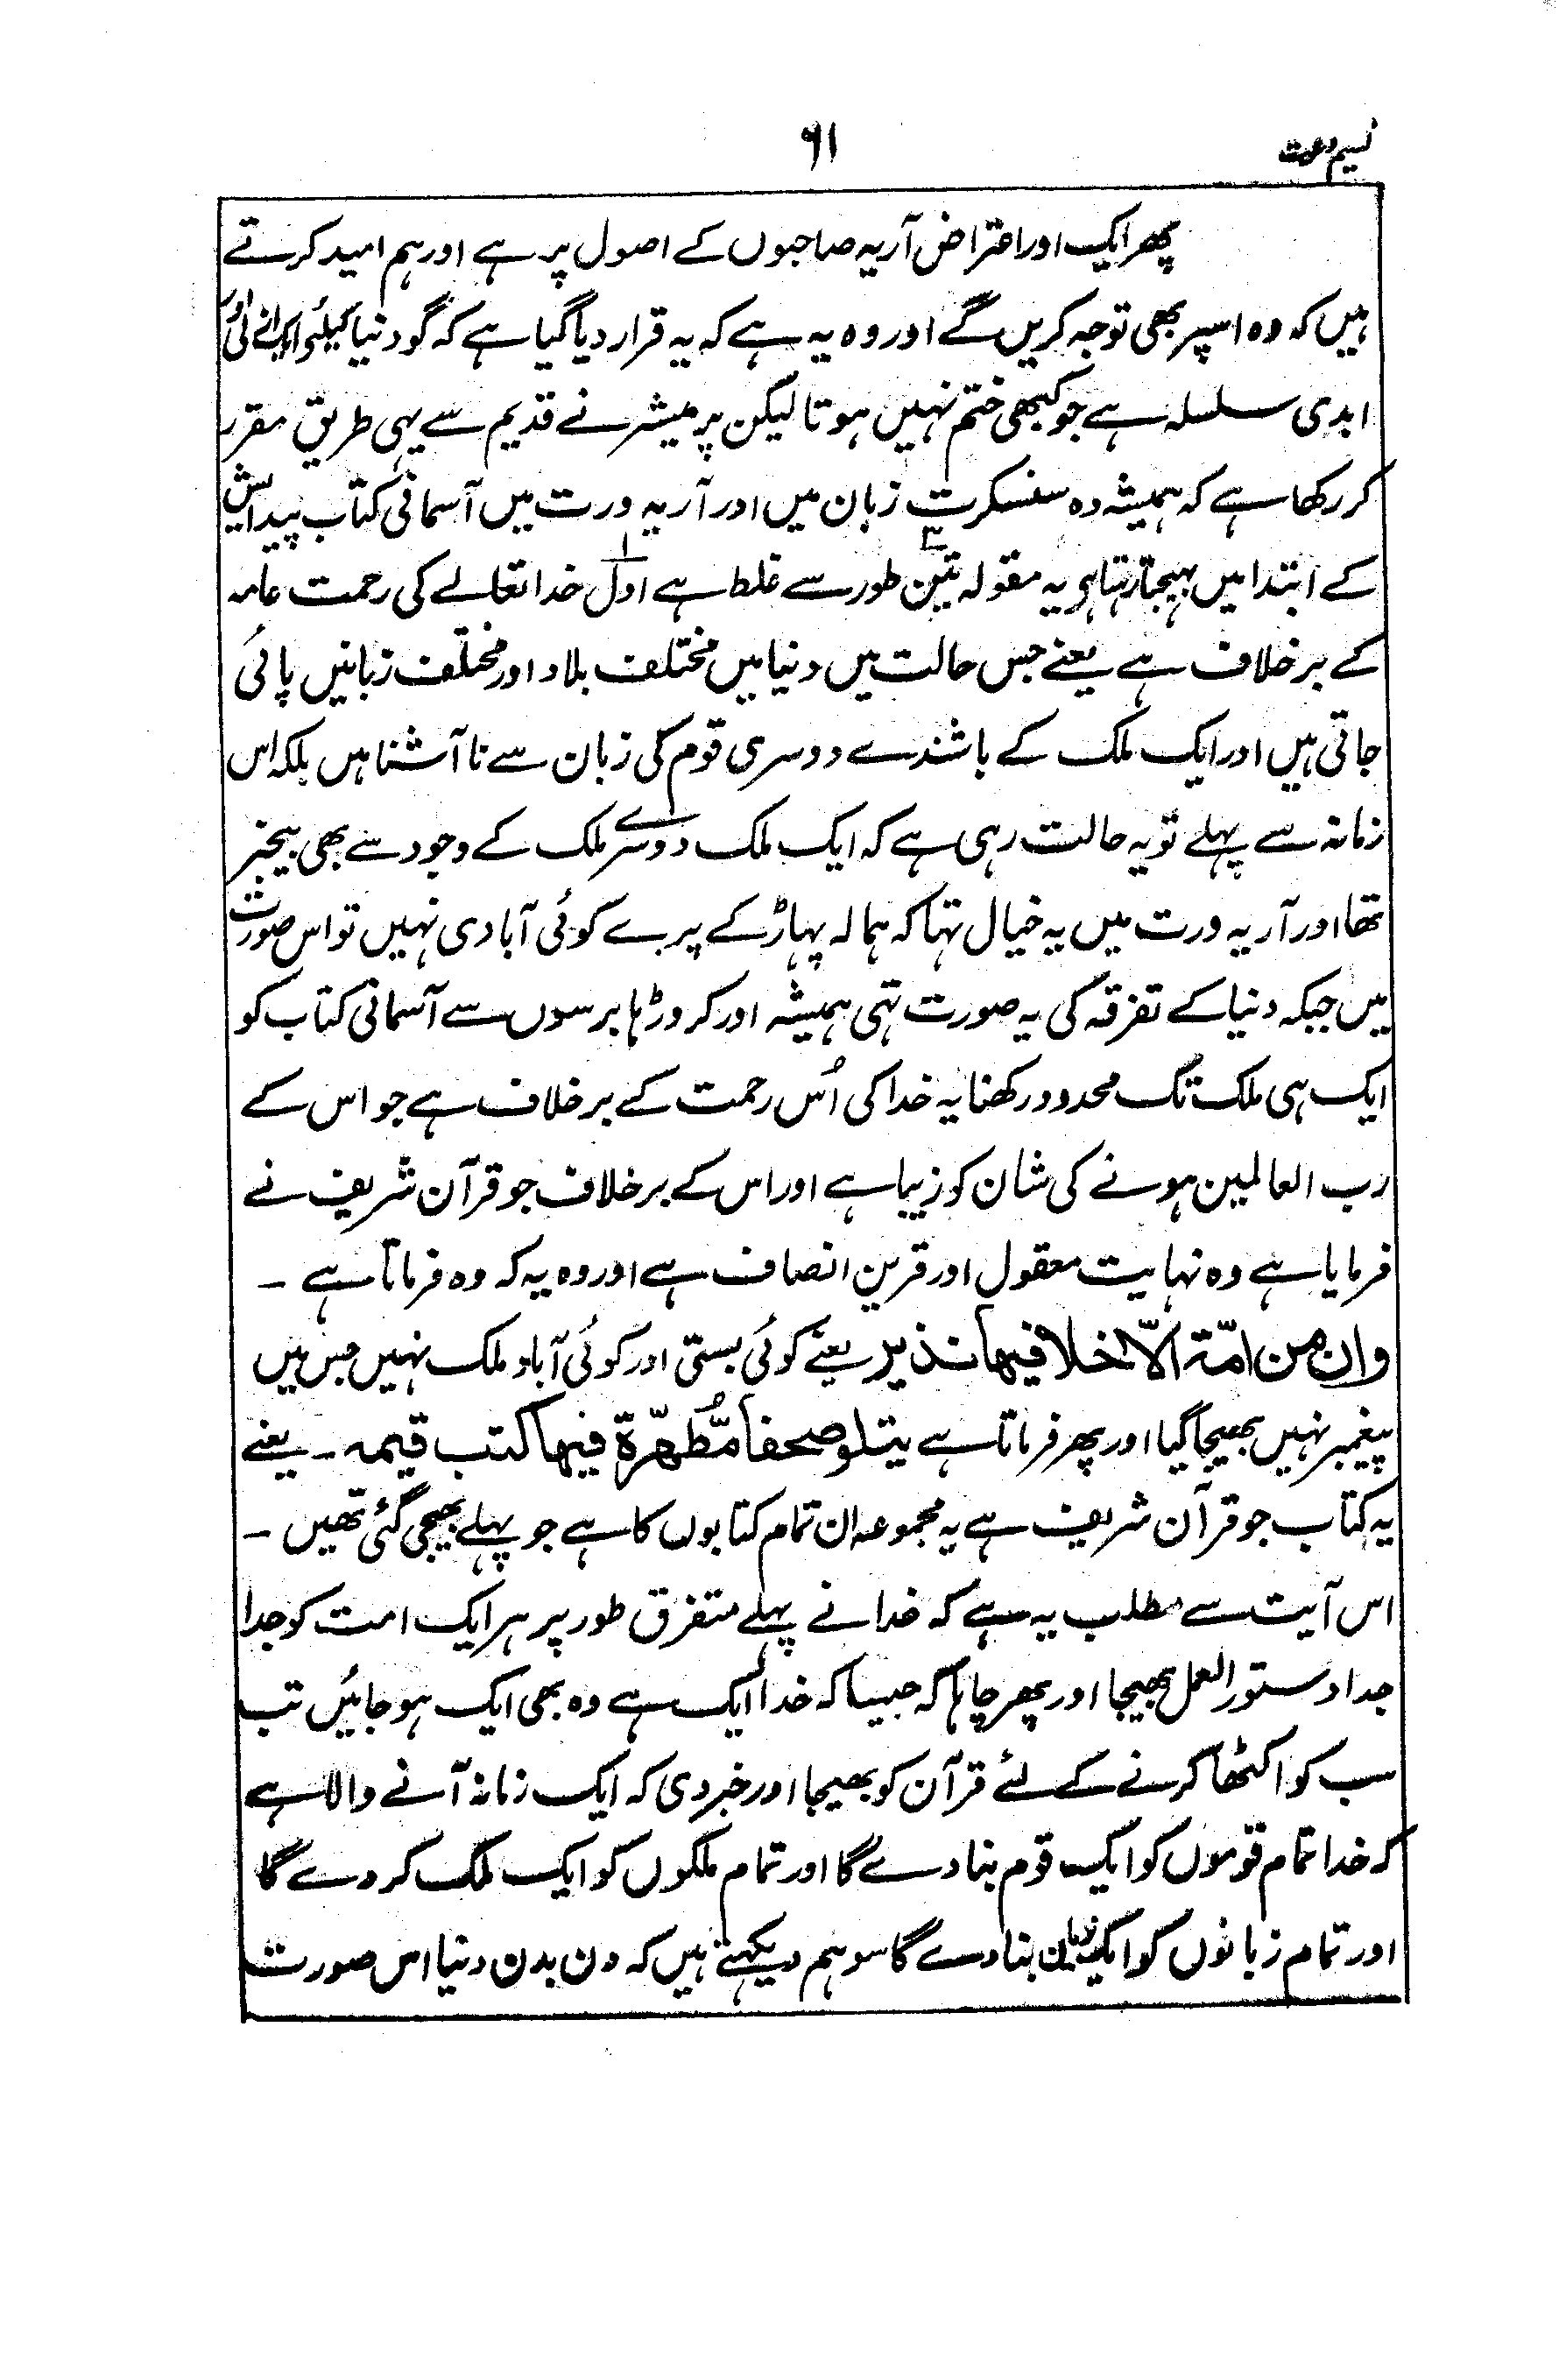 نسیم دعوت
۶۱
پھر ایک اور اعتراض آریہ صاحبوں کے اصول پر ہے اور ہم امید کرتے
ہیں کہ وہ اسپر بھی توجہ کریں گے اور وہ یہ ہے کہ یہ قرار دیا گیا ہے کہ گو دنیا کیلئے ایک ازلی اور
ابدی سلسلہ ہے جو کبھی ختم نہیں ہوتا لیکن پرمیشر نے قدیم سے یہی طریق مقرر
کر رکھا ہے کہ ہمیشہ وہ سنسکرت زبان میں اور آریہ ورت میں آسمانی کتاب پیدایش
کے ابتدا میں بہیجتا رہتا ہی یہ مقولہ تین طور سے غلط ہے اول خدا تعالےٰ کی رحمت عامہ
کے برخلاف ہے یعنے جس حالت میں دنیا میں مختلف بلاد اور مختلف زبانیں پائی
جاتی ہیں اور ایک ملک کے باشندے دوسری قوم کی زبان سے ناآشنا ہیں بلکہ اس
زمانہ سے پہلے تو یہ حالت رہی ہے کہ ایک ملک دوسرے ملک کے وجود سے بھی بیخبر
تھا اور آریہ ورت میں یہ خیال تہا کہ ہمالہ پہاڑ کے پرے کوئی آبادی نہیں تو اس صورت
میں جبکہ دنیا کے تفرقہ کی یہ صورت تہی ہمیشہ اور کروڑہا برسوں سے آسمانی کتاب کو
ایک ہی ملک تک محدود رکھنا یہ خدا کی اُس رحمت کے برخلاف ہے جو اس کے
رب العالمین ہونے کی شان کو زیبا ہے اور اس کے برخلاف جو قرآن شریف نے
فرمایا ہے وہ نہایت معقول اور قرین انصاف ہے اور وہ یہ کہ وہ فرماتا ہے ۔
وان من امّۃ الّا خلا فیہا نذیر یعنے کوئی بستی اور کوئی آباد ملک نہیں جس میں
پیغمبر نہیں بھیجا گیا اور پھر فرماتا ہے یتلو صحفاً مُّطہّرۃ فیہا کتب قیمہ ۔ یعنے
یہ کتاب جو قرآن شریف ہے یہ مجموعہ ان تمام کتابوں کا ہے جو پہلے بھیجی گئی تھیں ۔
اس آیت سے مطلب یہ ہے کہ خدا نے پہلے متفرق طور پر ہر ایک امت کو جدا
جدا دستور العمل بھیجا اور پھر چاہا کہ جیسا کہ خدا ایک ہے وہ بھی ایک ہو جائیں تب
سب کو اکٹھا کرنے کے لئے قرآن کو بھیجا اور خبر دی کہ ایک زمانہ آنے والا ہے
کہ خدا تمام قوموں کو ایک قوم بنا دے گا اور تمام ملکوں کو ایک ملک کر دے گا
اور تمام زبانوں کو ایک زبان بنا دے گا سو ہم دیکہتے ہیں کہ دن بدن دنیا اس صورت